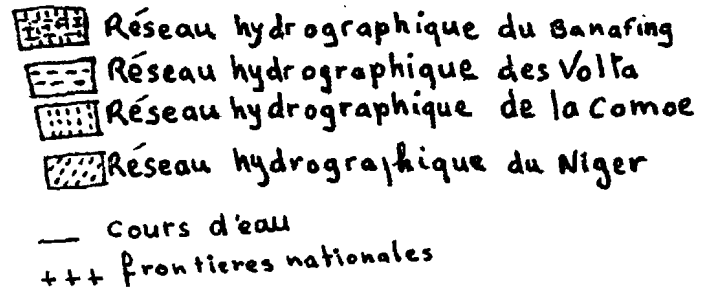 Réseau hydrographique du Banafing
Réseau hydrographique des Volta
Réseau hydrographique de la Comoe
Réseau hydrographique du Niger
Cours d'eau
+++ frontieres nationales